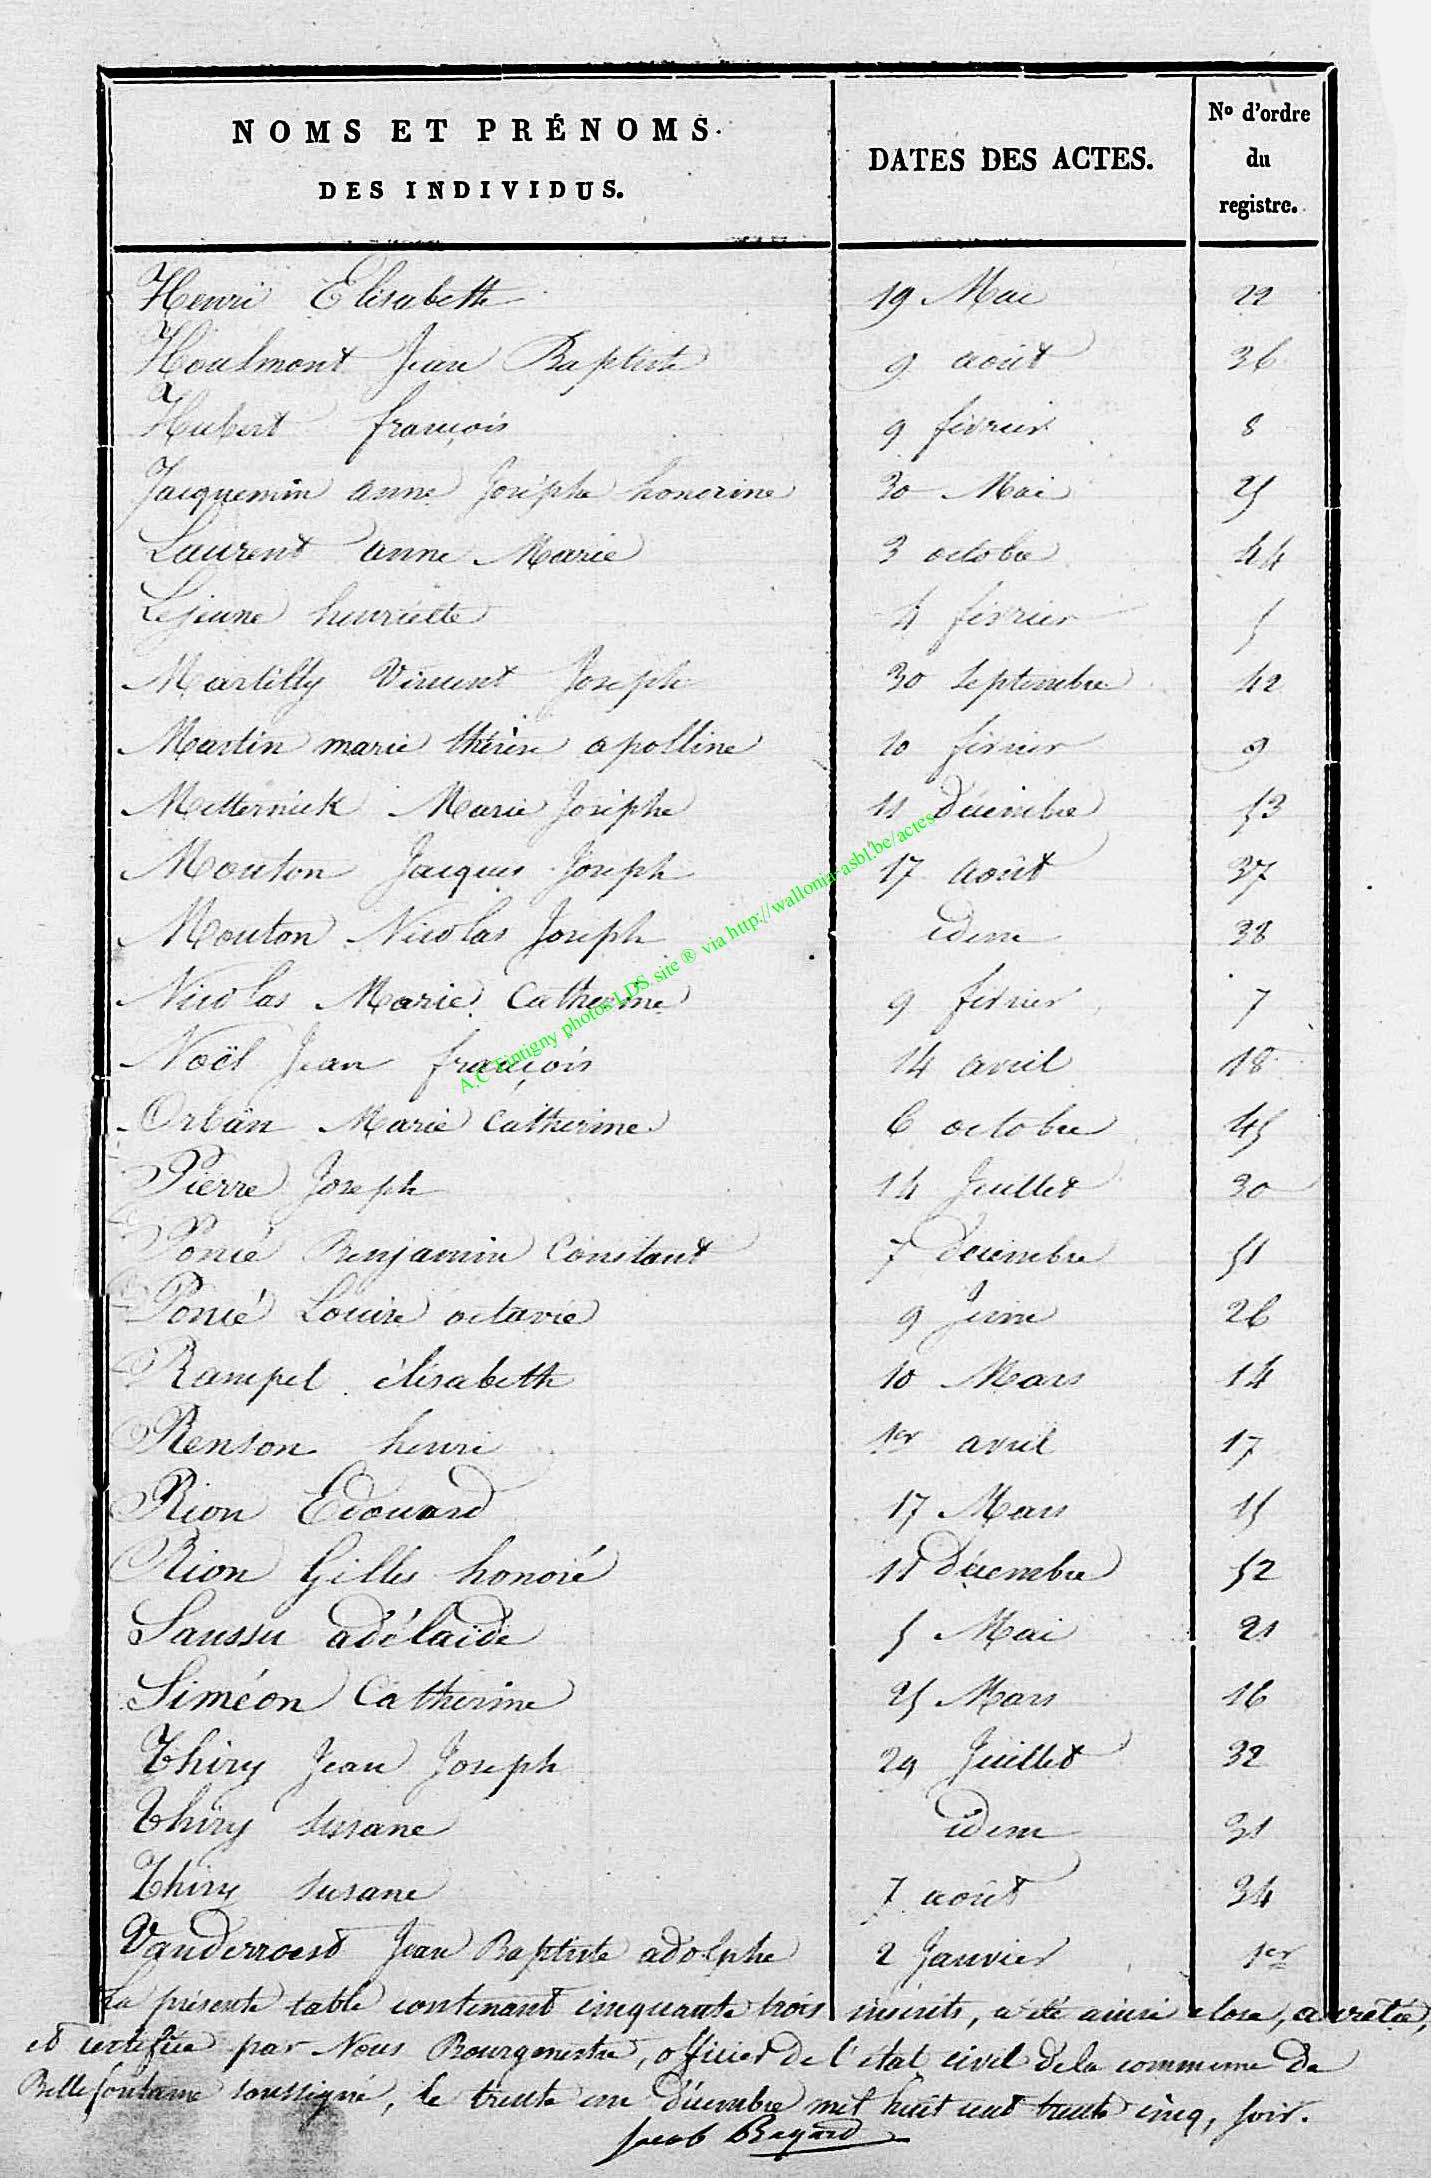 NOMS ET PRÉNOMS
DES INDIVIDUS.
DATES DES ACTES.
No d'ordre
du
registre.
Henri Elisabeth 19 Mai 22
Houlmont Jean Baptiste 9 août 36
Hubert françois 9 février 8
Jacquemin anne Josèphe honorine 30 Mai 25
Laurent anne Marie 3 octobre 44
Lejeune henriette 4 février 5
Martilly Vincent Joseph 30 septembre 42
Martin marie thérèse apolline 10 février 9
Metternick Marie Josèphe 11 décembre 53
Mouton Jacques Joseph 17 août 37
Mouton Nicolas Joseph idem 38
Nicolas Marie Catherine 9 février 7
Noël Jean françois 14 avril 18
Orban Marie Catherine 6 octobre 45
Pierre Joseph 14 Juillet 30
Poncé Benjamin Constant 7 décembre 51
Poncé Louise octavie 9 Juin 26
Rampel élisabeth 10 Mars 14
Renson henri 1er avril 17
Rion Edouard 17 Mars 15
Rion Gilles honoré 11 décembre 52
Saussu adélaïde 5 Mai 21
Siméon Catherine 25 Mars 16
Thiry Jean Joseph 29 Juillet 32
Thiry susane idem 31
Thiry susane 7 août 34
Vanderroest Jean Baptiste adolphe 2 Janvier 1er
La présente table contenant cinquante trois inscrits, a été ainsi close, arretée,
et certifiée par Nous Bourgmestre, officier de l'etat civil de la commune de
Bellefontaine soussigné, le trente un décembre mil huit cent trente cinq, soir.
Jacob Begard
A.C Tintigny photos LDS site ® via http://wallonia-asbl.be/actes